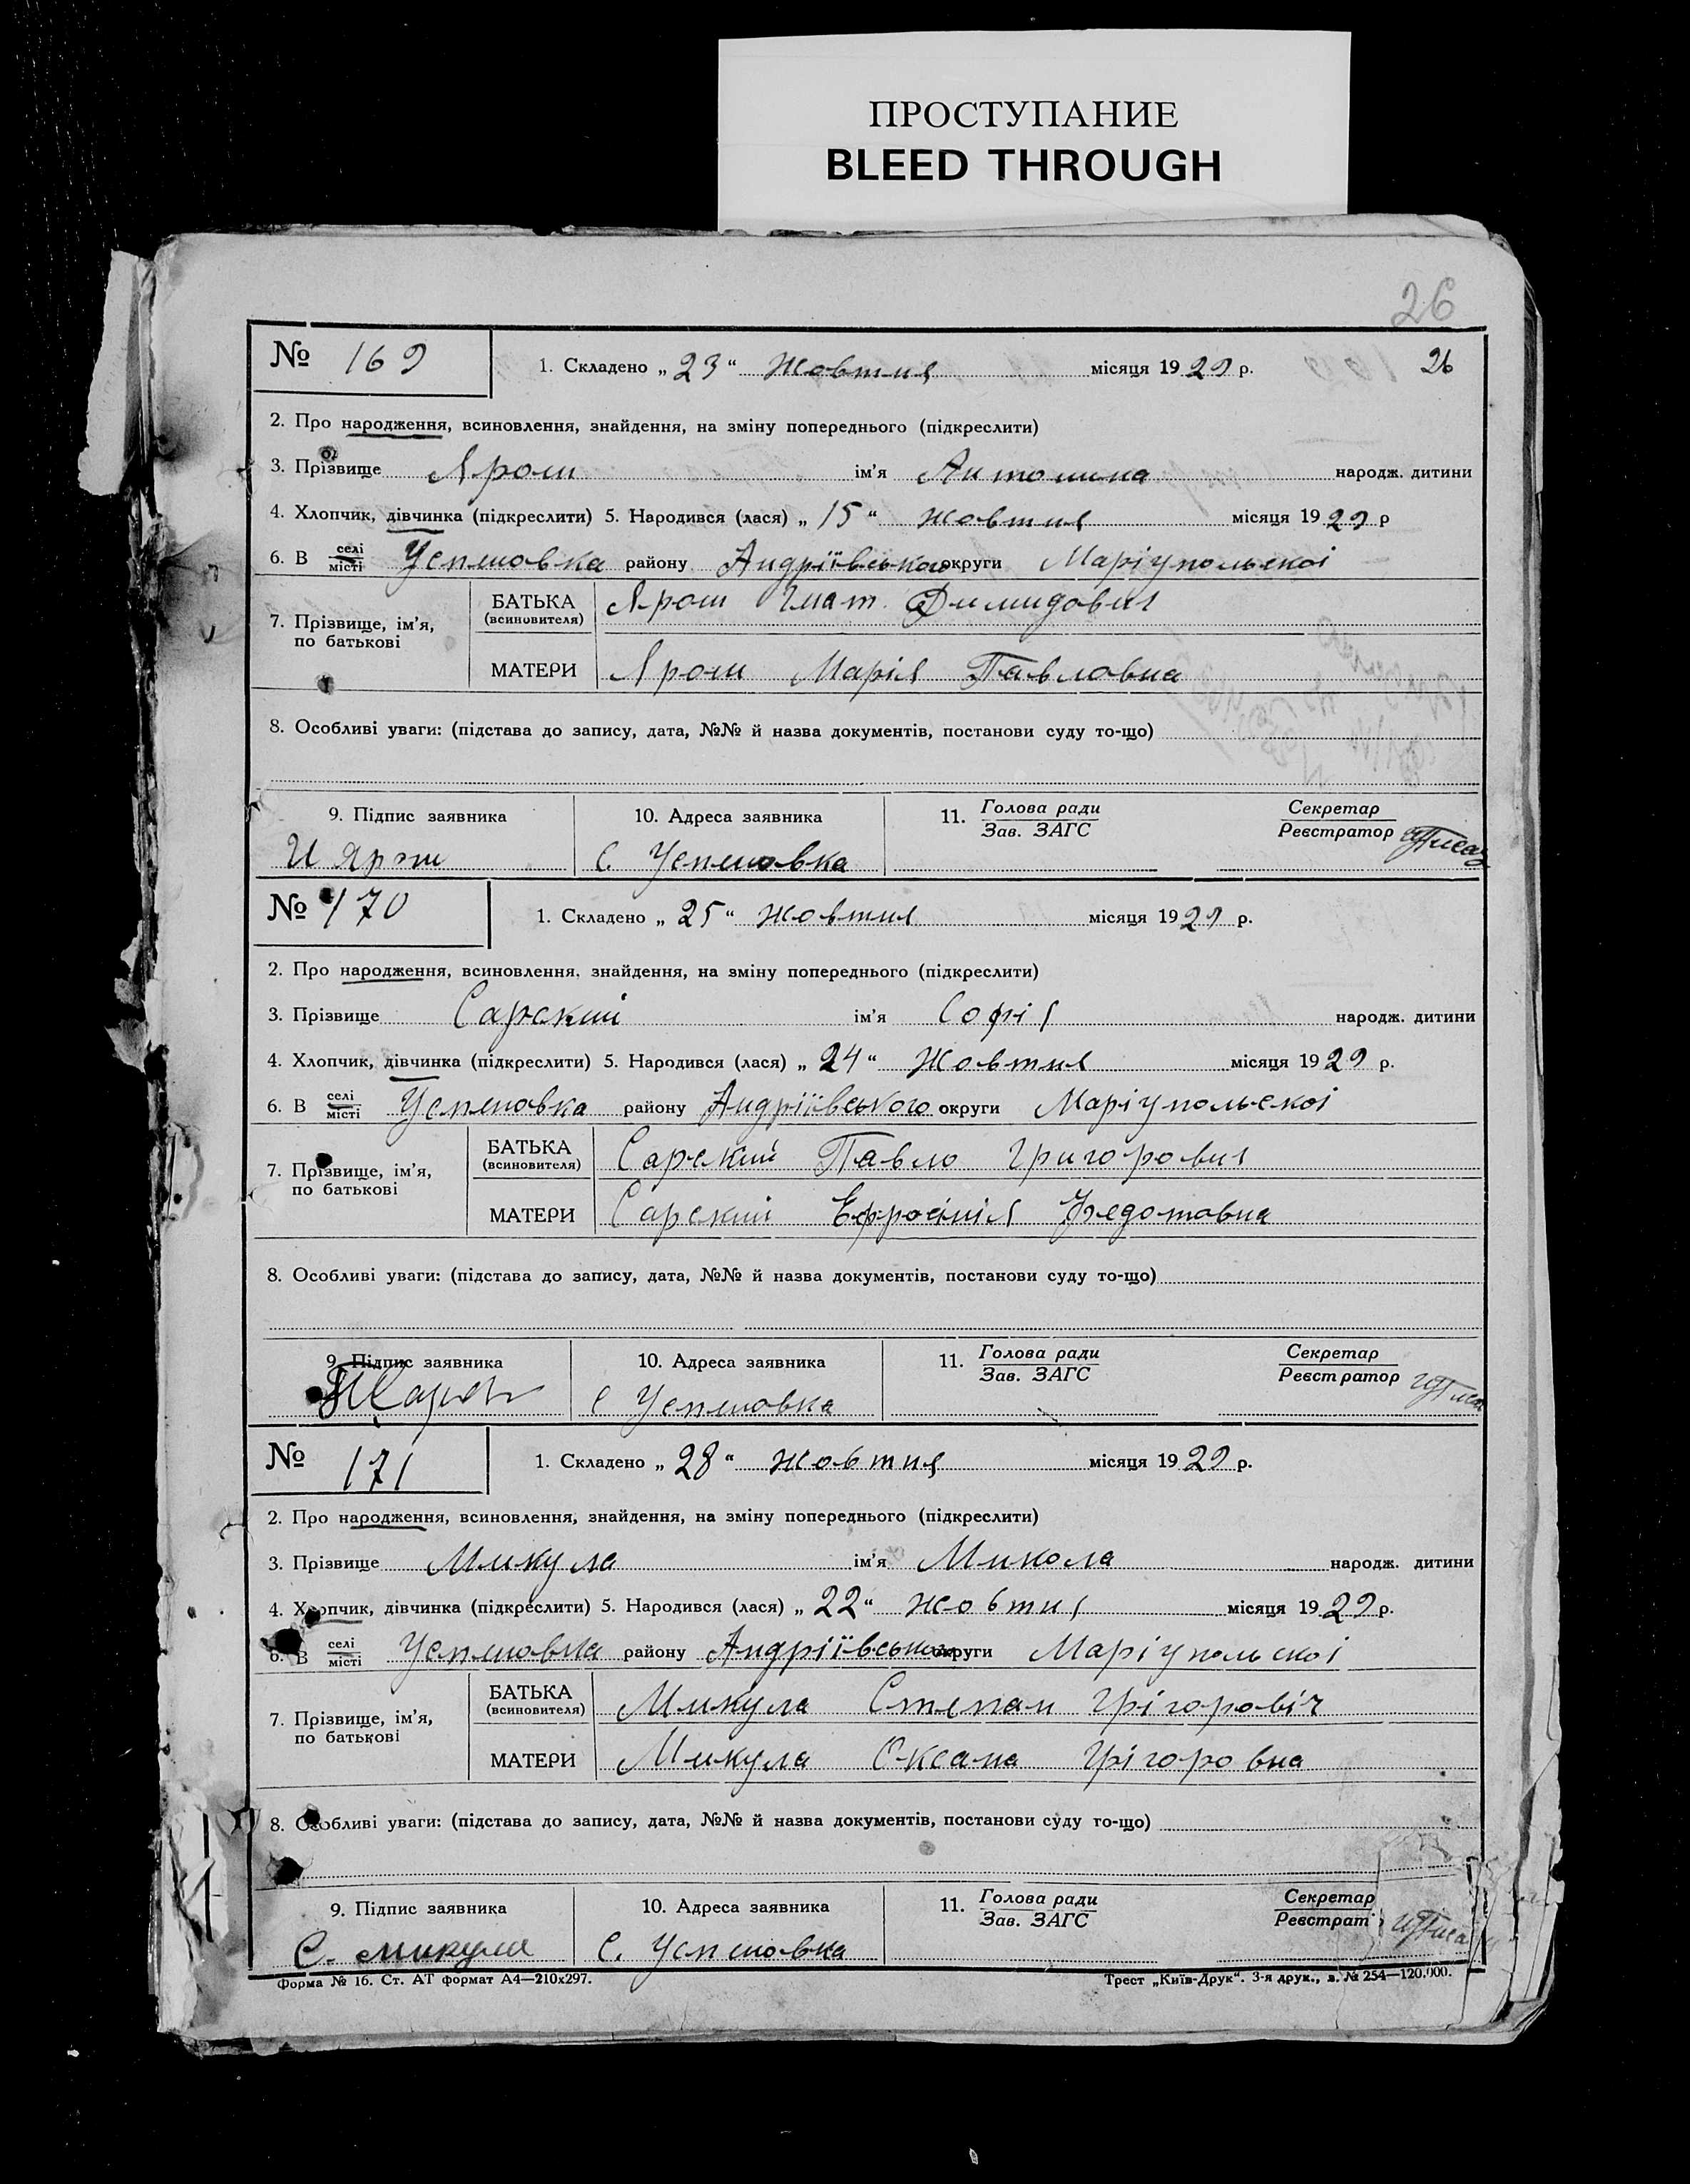 ПРОСТУПАНИЕ
BLEED THROUGH
26
№ 169 1. Складено „ 23 “ жовтня місяця 1929 р. 26
2. Про народження, всиновлення, знайдення, на зміну попереднього (підкреслити)
3. Прізвище Ярош ім’я Антонина народж. дитини
4. Хлопчик, дівчинка (підкреслити) 5. Народився (лася) „ 15 “ жовтня місяця 1929 р
6. В селі місті Успеновка району Андріївського округи Маріупольскої
7. Прізвище, ім’я, по батькові БАТЬКА (всиновителя) Ярош Гнат Димидович
МАТЕРИ Ярош Марія Павловна
8. Особливі уваги: (підстава до запису, дата, №№ й назва документів, постанови суду то-що)
9. Підпис заявника 10. Адреса заявника 11. Голова ради Зав. ЗАГС Секретар Реєстратор
И Ярош с. Успеновка
№ 170 1. Складено „ 25 “ жовтня місяця 1929 р.
2. Про народження, всиновлення, знайдення, на зміну попереднього (підкреслити)
3. Прізвище Сарский ім’я Софія народж. дитини
4. Хлопчик, дівчинка (підкреслити) 5. Народився (лася) „ 24 “ жовтня місяця 1929 р.
6. В селі місті Успеновка району Андріївського округи Маріупольскої
7. Прізвище, ім’я, по батькові БАТЬКА (всиновителя) Сарский Павло Григорович
МАТЕРИ Сарский Ефросінія Федотовна
8. Особливі уваги: (підстава до запису, дата, №№ й назва документів, постанови суду то-що)
9. Підпис заявника 10. Адреса заявника 11. Голова ради Зав. ЗАГС Секретар Реєстратор
с Успеновка
№ 171 1. Складено „ 28 “ жовтня місяця 1929 р.
2. Про народження, всиновлення, знайдення, на зміну попереднього (підкреслити)
3. Прізвище Микула ім’я Микола народж. дитини
4. Хлопчик, дівчинка (підкреслити) 5. Народився (лася) „ 22 “ жовтня місяця 1929 р.
6. В селі місті Успеновка району Андріївського округи Маріупольскої
7. Прізвище, ім’я, по батькові БАТЬКА (всиновителя) Микула Степан Грігоровіч
МАТЕРИ Микула Оксана Грігоровна
8. Особливі уваги: (підстава до запису, дата, №№ й назва документів, постанови суду то-що)
9. Підпис заявника 10. Адреса заявника 11. Голова ради Зав. ЗАГС Секретар Реєстрат
С. Микула с. Успеновка
Форма № 16. Ст. АТ формат А4—210х297. Трест „Київ-Друк“. 3-я друк., з. № 254—120.000.